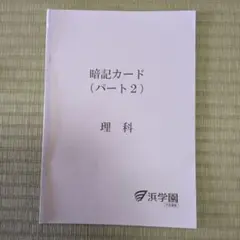 暗記カード
（パート２）
理科
浜学園